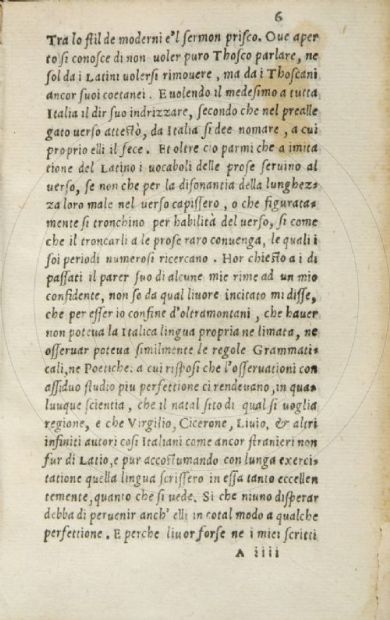 6
Tra lo stil de moderni e'l sermon prisco. Oue aper
to si conosce di non uoler puro Thosco parlare, ne
sol da i Latini uolersi rimouere, ma da i Thoscani
ancor suoi coetanei. E uolendo il medesimo a tutta
Italia il dir suo indrizzare, secondo che nel prealle
gato uerso attestò, da Italia si dee nomare, a cui
proprio elli il fece. Et oltre cio parmi che a imita
tione del Latino i uocaboli delle prose seruino al
uerso, se non che per la disonantia della lunghez-
za loro male nel uerso capissero, o che figurata-
mente si tronchino per habilità del uerso, si come
che il troncarli a le prose raro conuenga, le quali i
soi periodi numerosi ricercano. Hor chiesto a i di
passati il parer suo di alcune mie rime ad un mio
confidente, non so da qual liuore incitato mi disse,
che per esser io confine d'oltramontani, che hauer
non poteua la Italica lingua propria ne limata, ne
osseruar poteua similmente le regole Grammati-
cali, ne Poetiche. a cui risposi che l'osseruationi con
assiduo studio piu perfettione ci rendeuano, in qua-
luuque scientia, che il natal sito di qual si uoglia
regione, e che Virgilio, Cicerone, Liuio, & altri
infiniti autori cosi Italiani come ancor stranieri non
fur di Latio, e pur accostumando con lunga exerci-
tatione quella lingua scrissero in essa tanto eccellen
temente, quanto che si uede. Si che niuno disperar
debba di peruenir anch' elli in cotal modo a qualche
perfettione. E perche liuor forse ne i miei scritti
A iiii